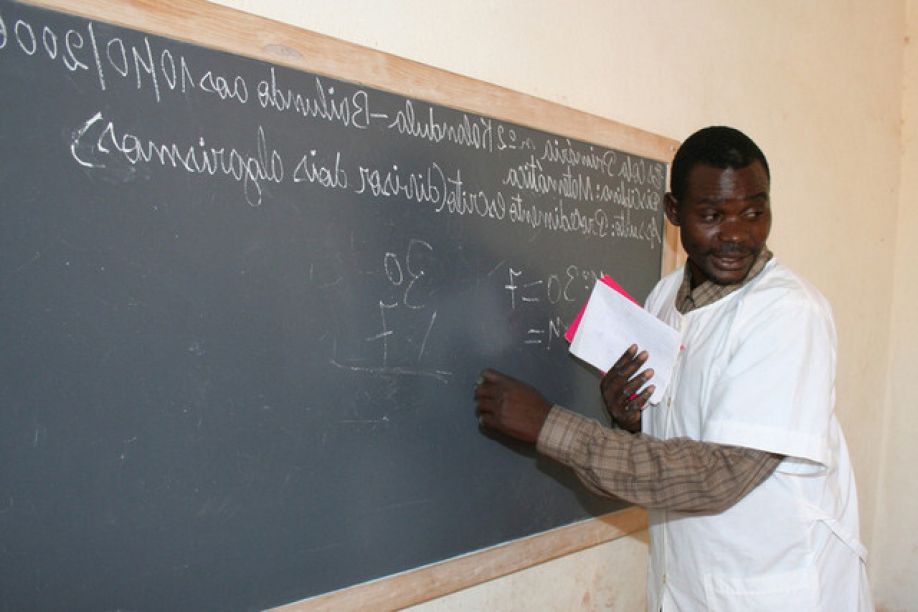 Escola Primária nº 22 Kalandula - Bailundo aos 10/10/2006
Disciplina: Matemática
Assunto: Procedimento escrito (divisor dois algarismos)
30 = 7
30
7